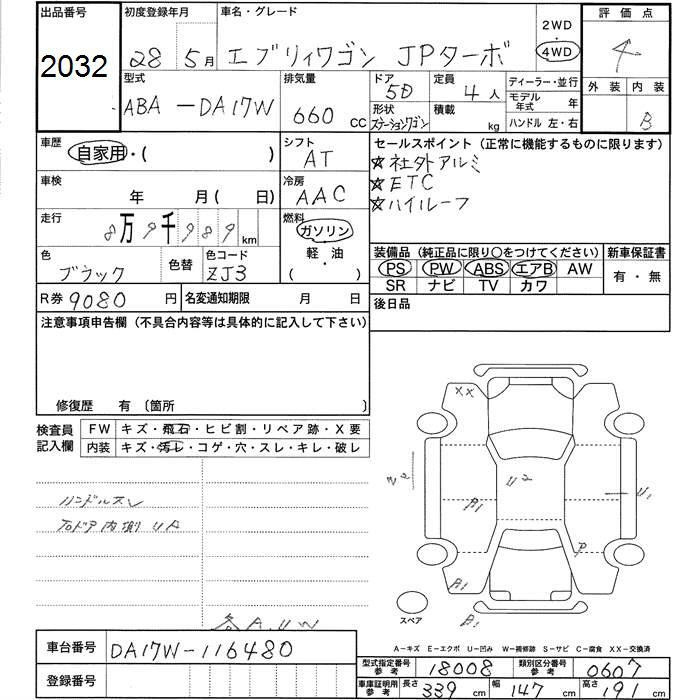 出品番号 初度登録年月 車名・グレード 2WD 評価点
2032 28 5月 エブリィワゴン JPターボ 4WD 4
型式 排気量 ドア 5D 定員 4人 ディーラー・並行 外装 内装
ABA-DA17W 660 CC 形状 ステーションワゴン 積載 kg モデル年式 年 B
ハンドル 左・右
車歴 自家用・( ) シフト AT セールスポイント (正常に機能するものに限ります)
☆社外アルミ
車検 年 月( 日) 冷房 AAC ☆ETC
☆ハイルーフ
走行 8万9千989km 燃料 ガソリン
軽・油
( ・ )
色 ブラック 色替 色コード ZJ3 装備品 (純正品に限り○をつけてください) 新車保証書
PS PW ABS エアB AW 有・無
SR ナビ TV カワ
R券 9080円 名変通知期限 月 日 後日品
注意事項申告欄 (不具合内容等は具体的に記入して下さい)
修復歴 有 〔箇所 〕
検査員記入欄 FW キズ・飛石・ヒビ割・リペア跡・X要
内装 キズ・汚レ・コゲ・穴・スレ・キレ・破レ
ハンドルスレ
右ドア内張リ
XX
U2
U1
β1
P
β1
β1
スペア
各A.U.W
A-キズ E-エクボ U-凹み W-補修跡 S-サビ C-腐食 XX-交換済
車台番号 DA17W-116480
型式指定番号 参考 18008 類別区分番号 参考 0607
登録番号
車庫証明用 参考 長さ 339cm 幅 147cm 高さ 191cm